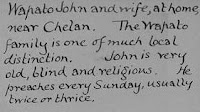 Wapato John and wife, at home,
near Chelan. The Wapato
family is one of much local
distinction. John is very
old, blind and religious. He
preaches every Sunday, usually
twice or thrice.